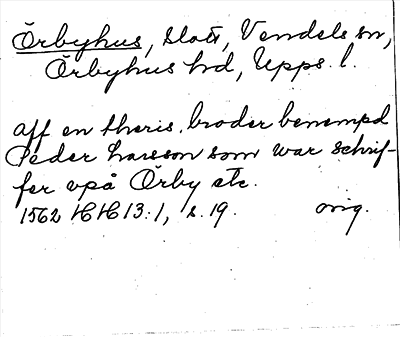 Örbyhus, slott, Vendels sn,
Örbyhus hd, Upps. l.
aff en theris. broder benempd
Peder Larsson som war schrif-
fer vpå Örby etc.
1562 HH 13:1, s. 19. orig.